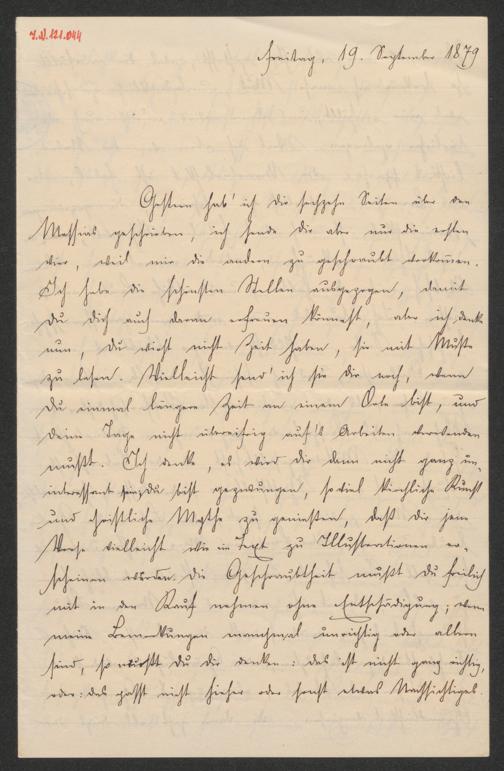 I.N. 121.044
Freitag, 19. September 1879
Gestern hab' ich Dir sechzehn Seiten über den
Messias geschrieben, ich sende Dir aber nur die ersten
vier, weil mir die andern zu geschraubt vorkom̄en.
Ich habe die schönsten Stellen ausgezogen, damit
Du Dich auch daran erfreuen könntest, aber ich denke
nun, Du wirst nicht Zeit haben, sie mit Muße
zu lesen. Vielleicht send' ich sie Dir noch, wenn
Du einmal längere Zeit an einem Orte bist, und
Deine Tage nicht übereifrig auf's Arbeiten verwenden
mußt. Ich denke, es wird Dir dann nicht ganz un-
interessant sein; Du bist gezwungen, soviel kirchliche Kunst
und christliche Mythe zu genießen, daß Dir jene
Verse vielleicht wie ein Text zu Illustrationen er-
scheinen werden. Die Geschraubtheit mußt Du freilich
mit in den Kauf nehmen ohne Entschädigung; wenn
meine Bemerkungen manchmal unrichtig oder albern
sind, so mußt Du Dir denken: das ist nicht ganz richtig,
oder: das paßt nicht hieher oder sonst etwas Nachsichtiges.